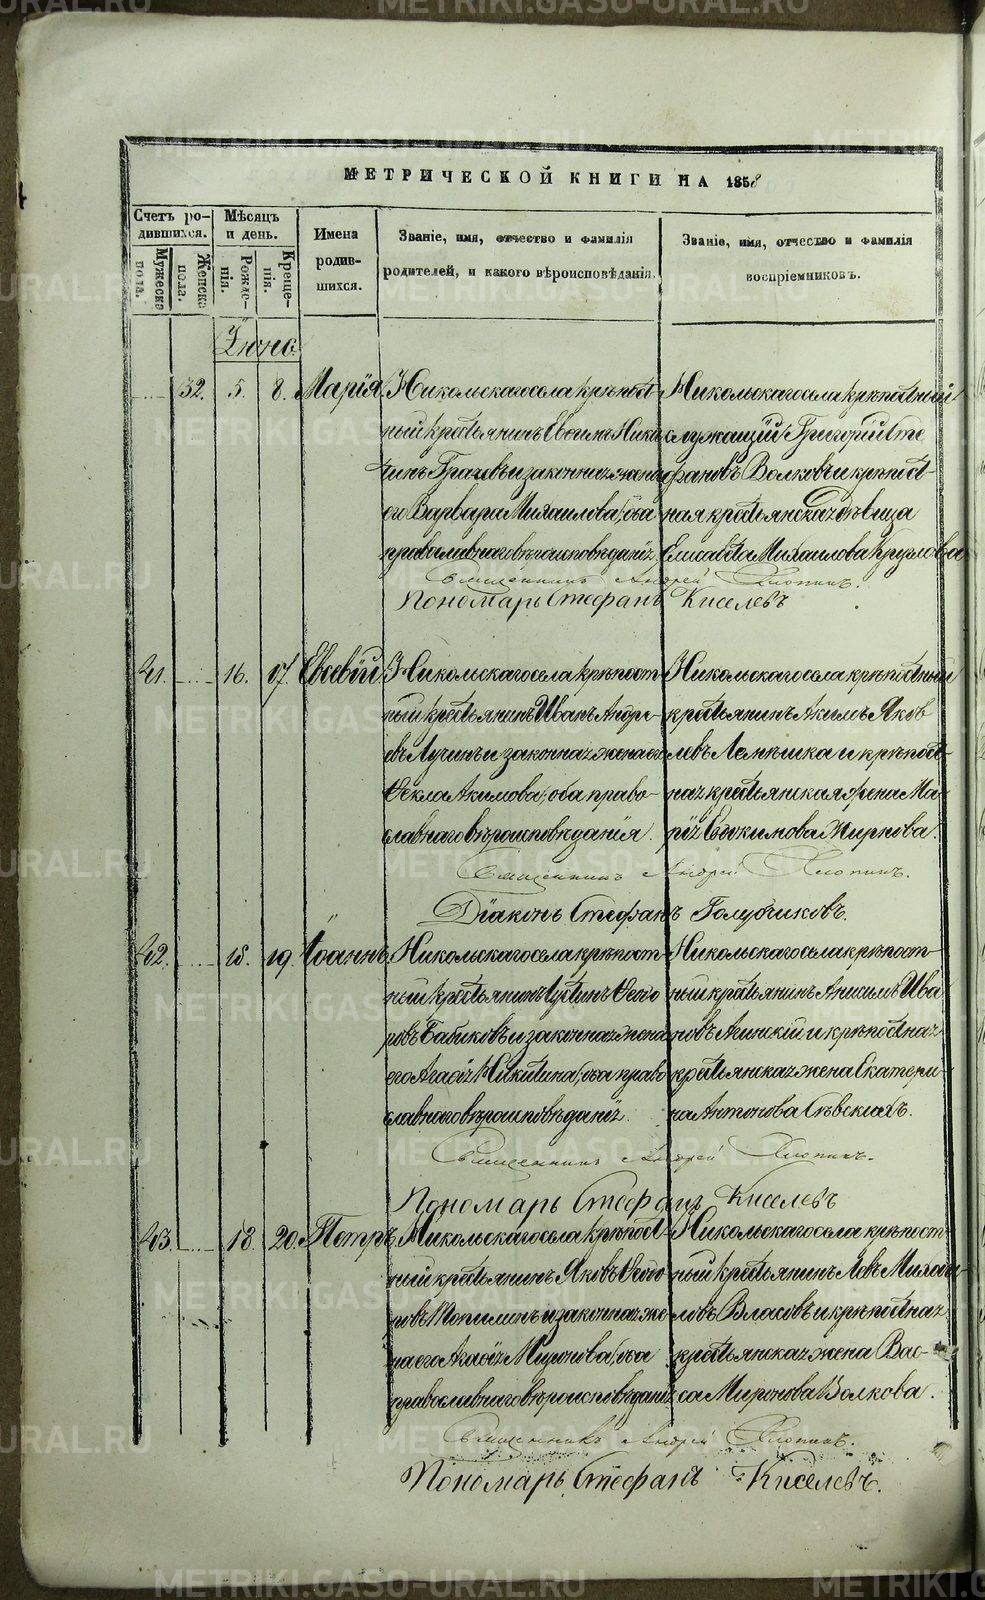 МЕТРИЧЕСКОЙ КНИГИ НА 1858
Счетъ ро-
дившихся.
Мужеска
пола.
Женска
пола.
Мѣсяцъ
и день.
Рожде-
нія.
Креще-
нія.
Имена
родив-
шихся.
Званіе, имя, отчество и фамилія
родителей, и какого вѣроисповѣданія.
Званіе, имя, отчество и фамилія
воспріемниковъ.
Іюнь
32. 5. 8. Марія
Никольскаго села крѣпост-
ный крестьянинъ
и законная жена
его Варвара Михаилова, оба
православнаго вѣроисповѣданія
Никольскаго села крѣпостный
служащій Григорій Сте
фановъ Волковъ и крѣпост-
ная крестьянская дѣвица
Елисавета Михаилова
Священникъ Андрей
Пономарь Стефанъ Киселевъ
41. 16. 17. Евсевій
Никольскаго села крѣпост
ный крестьянинъ Иванъ Андре-
евъ Лучинъ и законная жена его
Ѳекла Акимова, оба право-
славнаго вѣроисповѣданія.
Никольскаго села крѣпостный
крестьянинъ Акимъ Яков
левъ и крѣпост-
ная крестьянская жена Ма-
рія Евдокимова Жиркова.
Священникъ Андрей
Діаконъ Стефанъ Голубчиковъ.
42. 18. 19. Іоаннъ
Никольскаго села крѣпост
ный крестьянинъ Іустинъ Ѳедо
ровъ Бабиковъ и законная жена
его Агафія Никитина, оба право
славнаго вѣроисповѣданія.
Никольскаго села крѣпост-
ный крестьянинъ Анисимъ Ива
новъ и крѣпостная
крестьянская жена Екатери-
на Антонова
Священникъ Андрей
Пономарь Стефанъ Киселевъ
43. 18. 20. Петръ
Никольскаго села крѣпост-
ный крестьянинъ Яковъ Ѳедо
ровъ и законная же
на его Агафія Миронова, оба
православнаго вѣроисповѣданія
Никольскаго села крѣпост
ный крестьянинъ Левъ
Власовъ и крѣпостная
крестьянская жена Вас-
са Миронова Волкова.
Священникъ Андрей
Пономарь Стефанъ Киселевъ.
METRIKI.GASO-URAL.RU